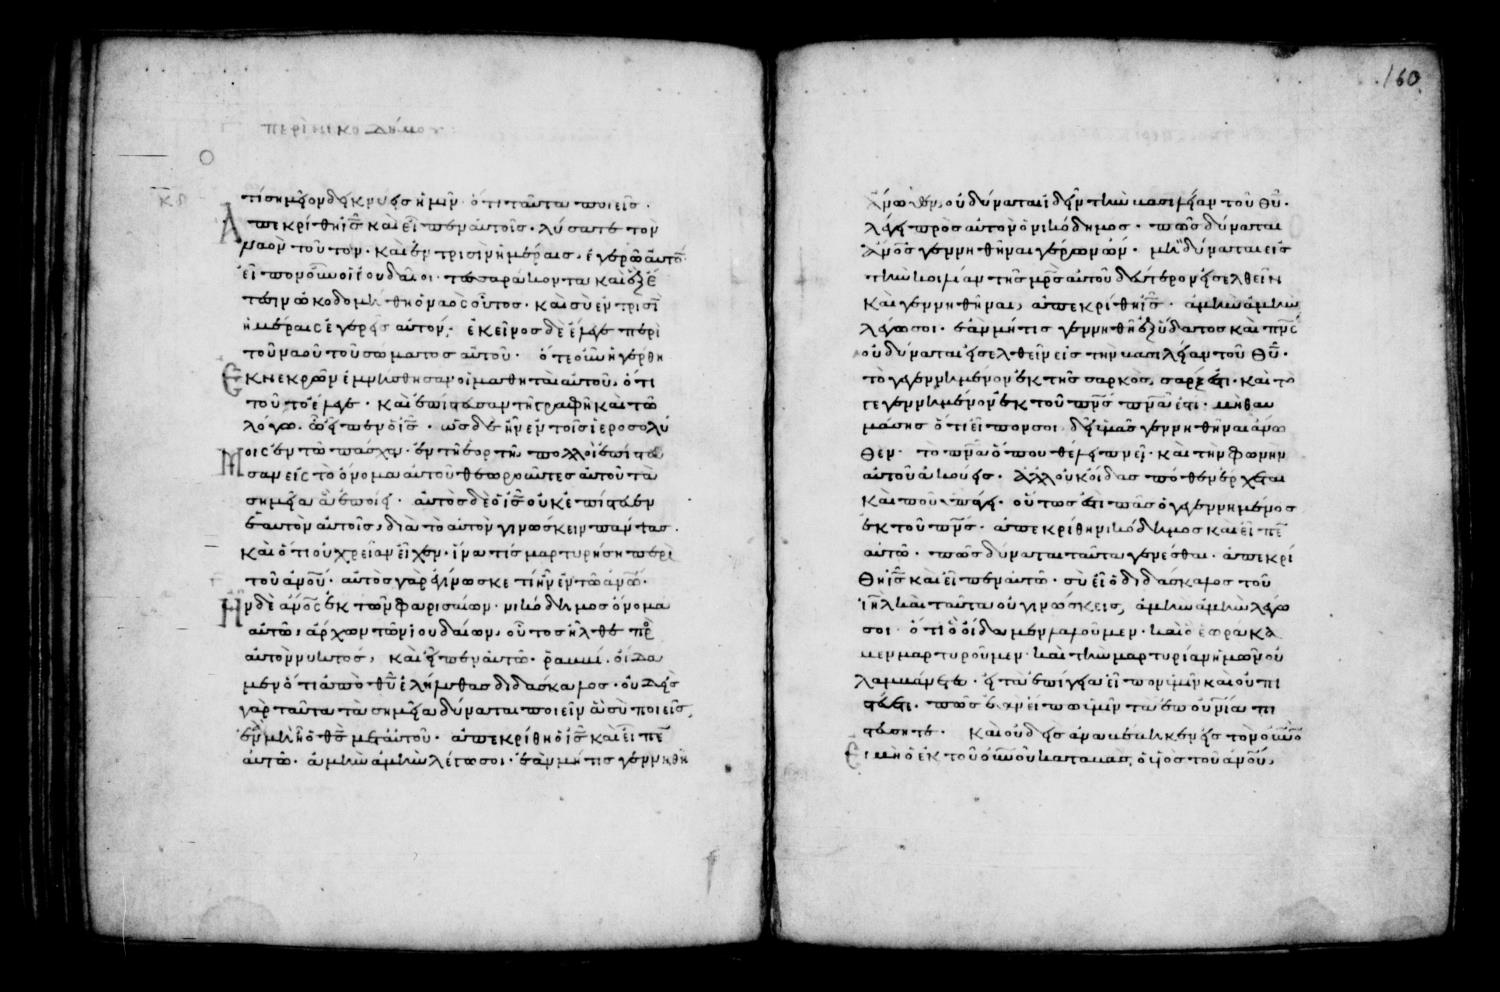 περὶ νικοδήμου
τί σημεῖον δεικνύεις ἡμῖν· ὅτι ταῦτα ποιεῖς·
Ἀπεκρίθη ὁ ις̅ καὶ εἶπεν αὐτοῖς· λύσατε τὸν
ναὸν τοῦτον· καὶ ἐν τρισὶν ἡμέραις, ἐγερῶ αὐτόν·
εἶπον οὖν οἱ ἰουδαῖοι· τεσσαράκοντα καὶ ἓξ ἔ
τεσιν ὠκοδομήθη ὁ ναὸς οὗτος· καὶ σὺ ἐν τρισὶν
ἡμέραις ἐγερεῖς αὐτόν; ἐκεῖνος δὲ ἔλεγε περὶ
τοῦ ναοῦ τοῦ σώματος αὐτοῦ· ὅτε οὖν ἠγέρθη
ἐκ νεκρῶν ἐμνήσθησαν οἱ μαθηταὶ αὐτοῦ, ὅτι
τοῦτο ἔλεγε· καὶ ἐπίστευσαν τῇ γραφῇ καὶ τῷ
λόγω· ὧ εἶπεν ὁ ις̅· ὡς δὲ ἦν ἐν τοῖς ἱεροσολύ
μοις ἐν τῶ πάσχα· ἐν τῇ ἑορτῇ, πολλοὶ ἐπίστευ
σαν εἰς τὸ ὄνομα αὐτοῦ θεωροῦντες αὐτοῦ τὰ
σημεῖα ἃ ἐποίει· αὐτὸς δὲ ὁ ις̅ οὐκ ἐπίστευεν
ἑαυτὸν αὐτοῖς, διὰ τὸ αὐτὸν γινώσκειν πάντας·
καὶ ὅτι οὐ χρείαν εἶχεν· ἵνα τις μαρτυρήση περὶ
τοῦ ανου̅· αὐτὸς γὰρ ἐγίνωσκε τί ἦν ἐν τῶ ανω̅·
Ἦν δὲ ανος̅ ἐκ τῶν φαρισαίων· νικόδημος ὄνομα
αὐτῶ, ἄρχων τῶν ἰουδαίων, οὗτος ἦλθε πρὸς
αὐτὸν νυκτός, καὶ εἶπεν αὐτῶ· ῥαββί· οἴδα
μεν ὅτι ἀπὸ θυ̅ ἐλήλυθας διδάσκαλος· οὐδεὶς
γὰρ ταῦτα τὰ σημεῖα δύναται ποιεῖν ἃ σὺ ποιεῖς,
ἐὰν μὴ ἦ ὁ θς̅ μετ' αὐτοῦ· ἀπεκρίθη ὁ ις̅ καὶ εἶπεν
αὐτῶ· ἀμὴν ἀμὴν λέγω σοι· ἐὰν μή τις γεννηθῆ
160
ἄνωθεν, οὐ δύναται ἰδεῖν τὴν βασιλείαν τοῦ θυ̅·
λέγει πρὸς αὐτὸν ὁ νικόδημος· πῶς δύναται
ανος̅ γεννηθῆναι γέρων ὤν· μὴ δύναται εἰς
τὴν κοιλίαν τῆς μρς̅ αὐτοῦ δεύτερον εἰσελθεῖν
καὶ γεννηθῆναι, ἀπεκρίθη ις̅· ἀμὴν ἀμὴν
λέγω σοι· ἐὰν μή τις γεννηθῆ ἐξ ὕδατος καὶ πνς̅
οὐ δύναται εἰσελθεῖν εἰς τὴν βασιλείαν τοῦ θυ̅·
τὸ γεγεννημένον ἐκ τῆς σαρκός, σάρξ ἐστι· καὶ τὸ
γεγεννημένον ἐκ τοῦ πνς̅ πνα̅ ἐστι· μὴ θαυ
μάσης ὅτι εἶπόν σοι, δεῖ ὑμᾶς γεννηθῆναι ἄνω
θεν· τὸ πνα̅ ὅπου θέλει πνεῖ· καὶ τὴν φωνὴν
αὐτοῦ ἀκούεις· ἀλλ' οὐκ οἶδας πόθεν ἔρχεται
καὶ ποῦ ὑπάγει· οὕτως ἐστὶ πᾶς ὁ γεγεννημένος
ἐκ τοῦ πνς̅· ἀπεκρίθη νικόδημος καὶ εἶπεν
αὐτῶ· πῶς δύναται ταῦτα γενέσθαι· ἀπεκρί
θη ις̅ καὶ εἶπεν αὐτῶ· σὺ εἶ ὁ διδάσκαλος τοῦ
ιηλ̅ καὶ ταῦτα οὐ γινώσκεις, ἀμὴν ἀμὴν λέγω
σοι· ὅτι ὃ οἴδαμεν λαλοῦμεν· καὶ ὃ ἑωράκα
μεν μαρτυροῦμεν· καὶ τὴν μαρτυρίαν ἡμῶν οὐ
λαμβάνετε· εἰ τὰ ἐπίγεια εἶπον ὑμῖν καὶ οὐ πι
στεύετε· πῶς ἐὰν εἴπω ὑμῖν τὰ ἐπουράνια πι
στεύσητε· καὶ οὐδεὶς ἀναβέβηκεν εἰς τὸν ουνον̅
εἰ μὴ ὁ ἐκ τοῦ ουνου̅ καταβάς, ὁ υἱὸς τοῦ ανου̅,